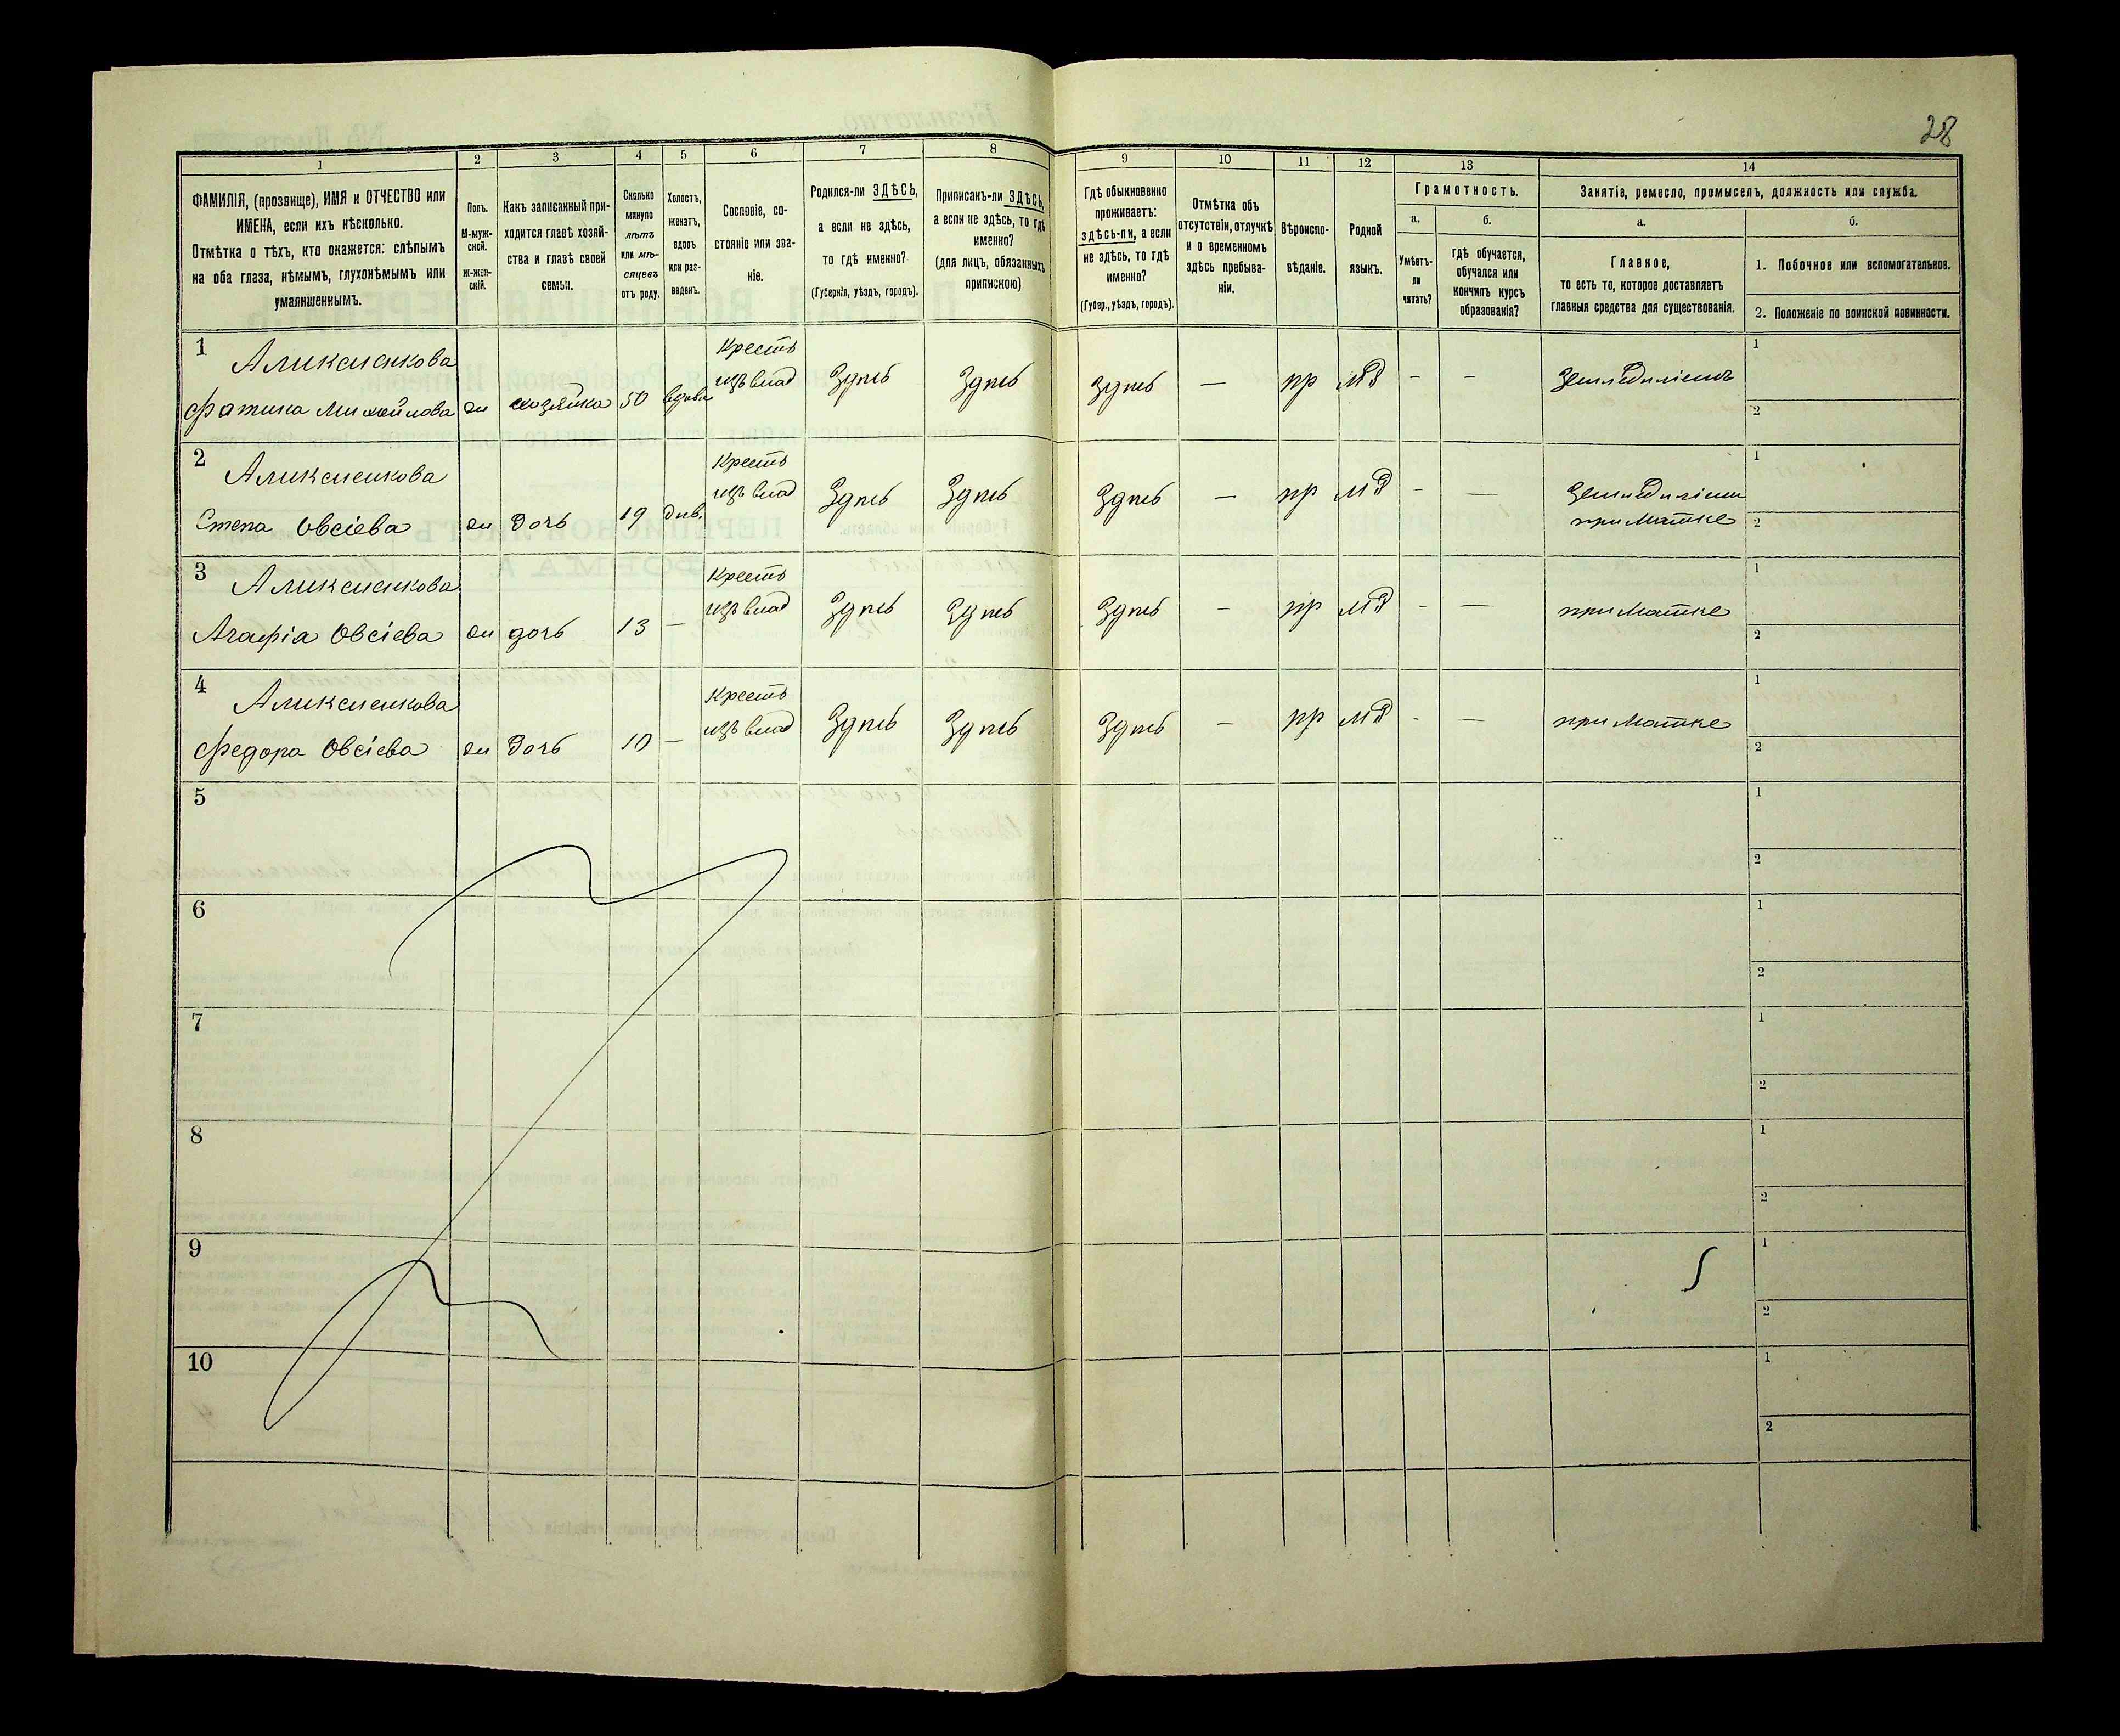 28
1 2 3 4 5 6 7 8 9 10 11 12 13 14
ФАМИЛІЯ, (прозвище), ИМЯ и ОТЧЕСТВО или
ИМЕНА, если ихъ нѣсколько.
Отмѣтка о тѣхъ, кто окажется: слѣпымъ
на оба глаза, нѣмымъ, глухонѣмымъ или
умалишеннымъ.
Полъ.
М-муж-
ской.
Ж-жен-
скій.
Какъ записанный при-
ходится главѣ хозяй-
ства и главѣ своей
семьи.
Сколько
минуло
лѣтъ
или мѣ-
сяцевъ
отъ роду.
Холостъ,
женатъ,
вдовъ
или раз-
веденъ.
Сословіе, со-
стояніе или зва-
ніе.
Родился-ли ЗДѢСЬ,
а если не здѣсь,
то гдѣ именно?
(Губернія, уѣздъ, городъ).
Приписанъ-ли ЗДѢСЬ,
а если не здѣсь, то гдѣ
именно?
(для лицъ, обязанныхъ
припискою)
Гдѣ обыкновенно
проживаетъ:
здѣсь-ли, а если
не здѣсь, то гдѣ
именно?
(Губер., уѣздъ, городъ).
Отмѣтка объ
отсутствіи, отлучкѣ
и о временномъ
здѣсь пребыва-
ніи.
Вѣроиспо-
вѣданіе.
Родной
языкъ.
Грамотность.
а.
Умѣетъ-
ли
читать?
б.
гдѣ обучается,
обучался или
кончилъ курсъ
образованія?
Занятіе, ремесло, промыселъ, должность или служба.
а.
Главное,
то есть то, которое доставляетъ
главныя средства для существованія.
б.
1. Побочное или вспомогательное.
2. Положеніе по воинской повинности.
1 Аликсиенкова Кресть 1
изъ влад Здпсь Здпсь Здпсь — пр мд - - Земледиліемъ
Фатина Михойлова ж хозяйка 50 вдова 2
2 Аликсиенкова Кресть 1
изъ влад Здпсь Здпсь Здпсь — пр мд - — Земледиліем
Степа Овсіева ж дочь 19 див. при Матке 2
3 Аликсиенкова Кресть 1
изъ влад Здпсь Здпсь Здпсь — пр мд - — при Матке
Агафіа Овсіева ж дочь 13 — 2
4 Аликсиенкова Кресть 1
изъ влад Здпсь Здпсь Здпсь — пр мд - — при Матке
Федора Овсіева ж дочь 10 — 2
5 1
2
6 1
2
7 1
2
8 1
2
9 1
2
10 1
2